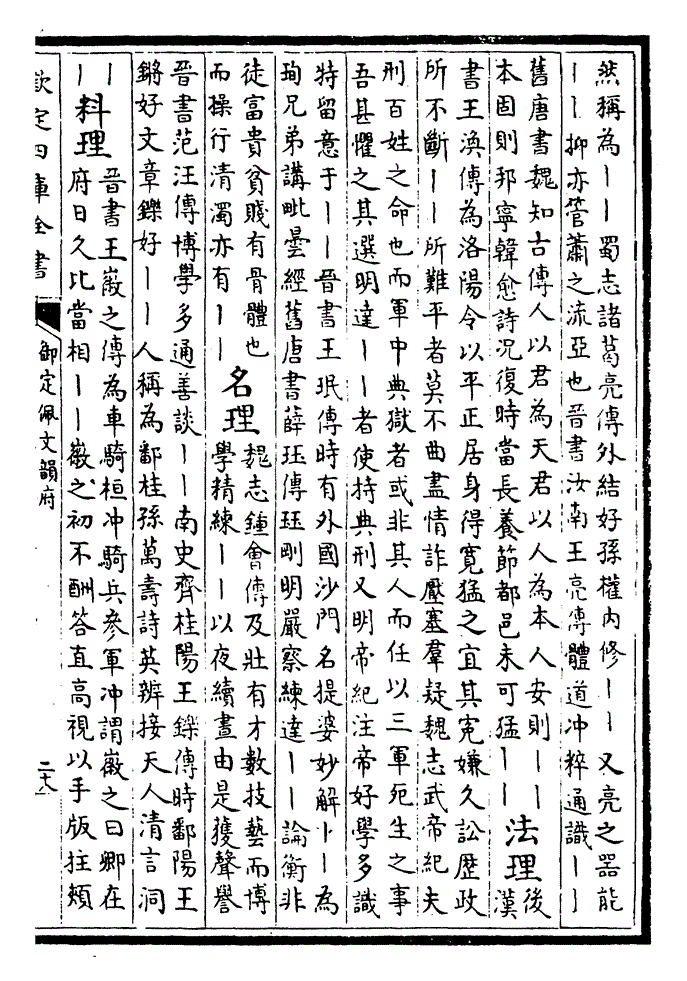 然稱為｜｜蜀志諸葛亮傳外結好孫權内修｜｜又亮之器能
｜｜抑亦管蕭之流亞也晉書汝南王亮傳體道沖粹通識｜｜
舊唐書魏知古傳人以君為天君以人為本人安則｜｜後
本固則邦寧韓愈詩况復時當長養節都邑未可猛｜｜法理漢
書王渙傳為洛陽令以平正居身得寛猛之宜其寃嫌久訟歴政
所不斷｜｜所難平者莫不曲盡情詐壓塞羣疑魏志武帝紀夫
刑百姓之命也而軍中典獄者或非其人而任以三軍死生之事
吾甚懼之其選明達｜｜者使持典刑又明帝紀注帝好學多識
特留意于｜｜晉書王珉傳時有外國沙門名提婆妙解｜｜為
珣兄弟講毗曇經舊唐書薛珏傳珏剛明嚴察練達｜｜論衡非
徒富貴貧賤有骨體也
而操行清濁亦有｜｜名理魏志鍾會傳及壯有才數技藝而博
學精練｜｜以夜續晝由是獲聲譽
晉書范汪傳博學多通善談｜｜南史齊桂陽王鑠傳時鄱陽王
鏘好文章鑠好｜｜人稱為鄱桂孫萬壽詩英辨接天人清言洞
｜｜料理晉書王徽之傳為車騎桓沖騎兵參軍沖謂徽之曰卿在
｜府日久比當相｜｜徽之初不酬答直高視以手版拄頰
欽定四庫全書
御定佩文韻府
二十八